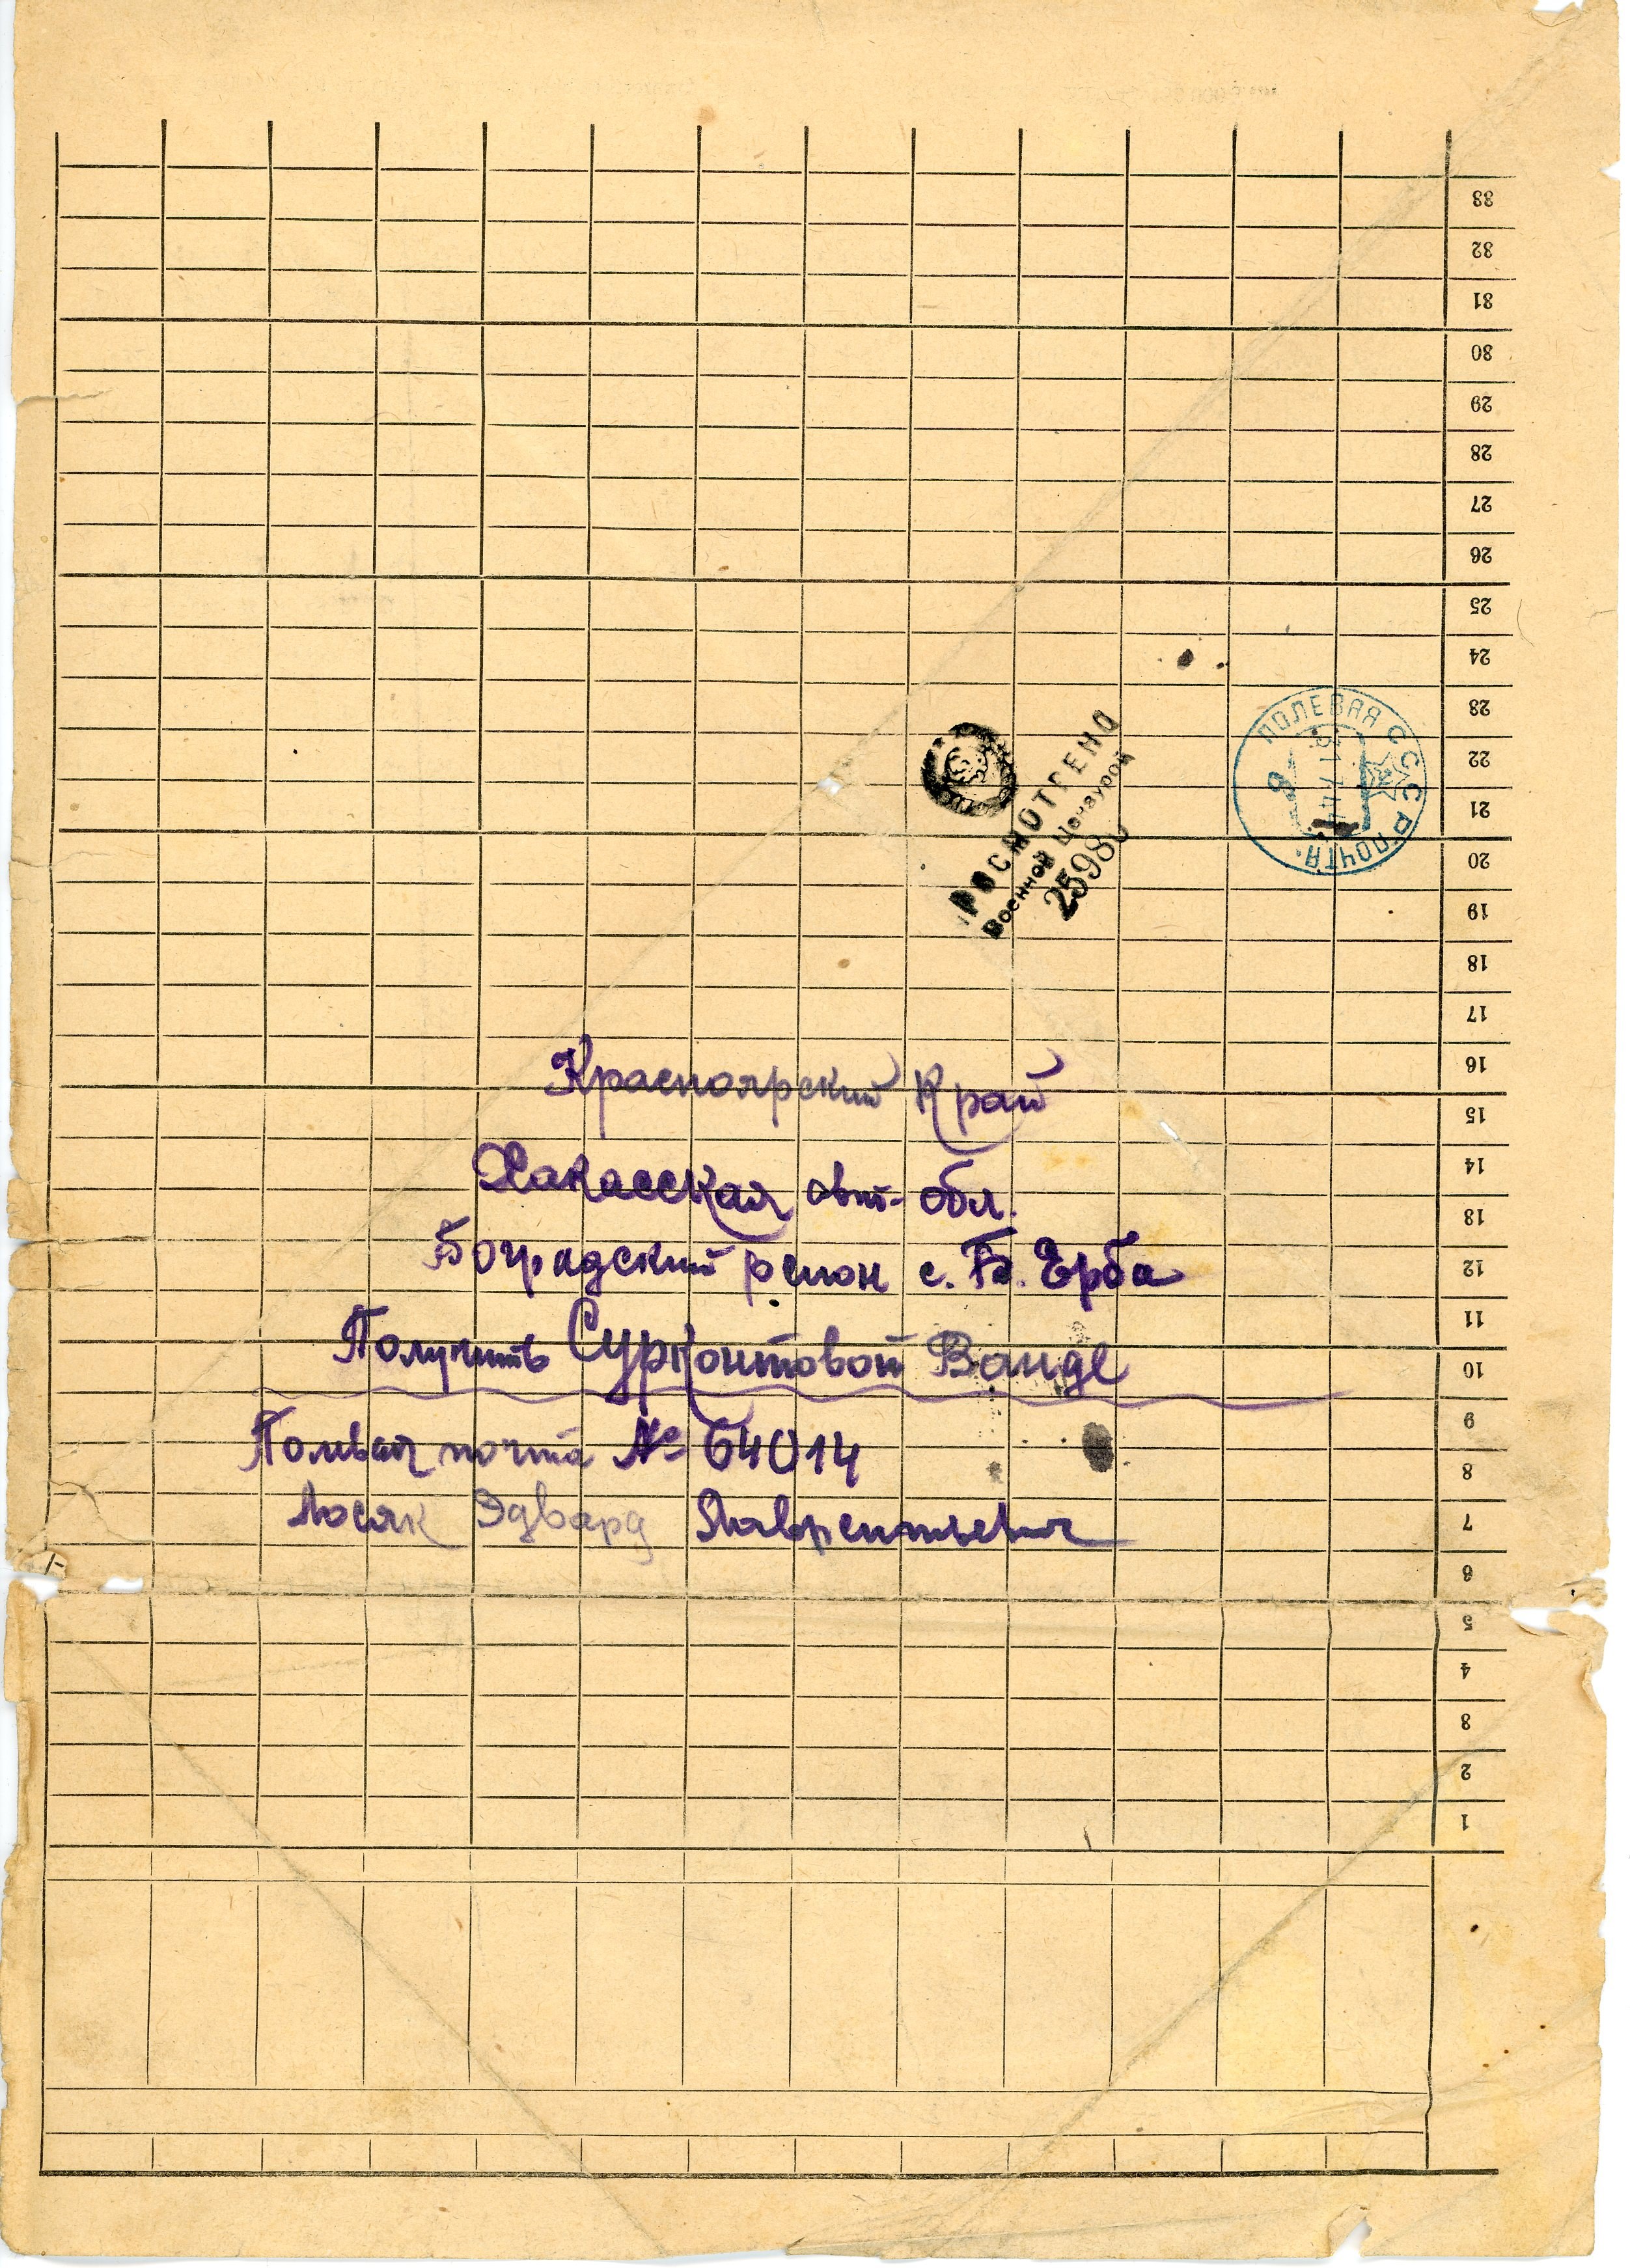 33
32
31
30
29
28
27
26
25
24
23
22
21
20
19
18
17
16
15
14
13
12
11
10
9
8
7
6
5
4
3
2
1
ПОЛЕВАЯ ПОЧТА
СССР
ПРОСМОТРЕНО
Военной Цензурой
2598
Красноярский Край
Хакасская авт. обл.
Боградский район с. Б. Ерба
Получить Сурконтовой Ванде
Полевая почта № 64014
Лосяк Эдвард Лаврентьевич